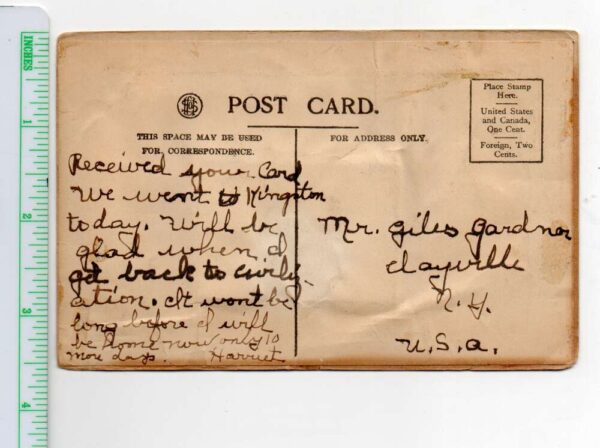 INCHES
1
2
3
4
POST CARD.
THIS SPACE MAY BE USED
FOR CORRESPONDENCE.
FOR ADDRESS ONLY.
Place Stamp
Here.
United States
and Canada,
One Cent.
Foreign, Two
Cents.
Received your Card
We went to Kingston
today. Will be
glad when I
get back to civily-
ation. It wont be
long before I will
be home now only 10
more days. Harriet
Mr. Giles Gardner
Clayville
N.Y.
U.S.A.